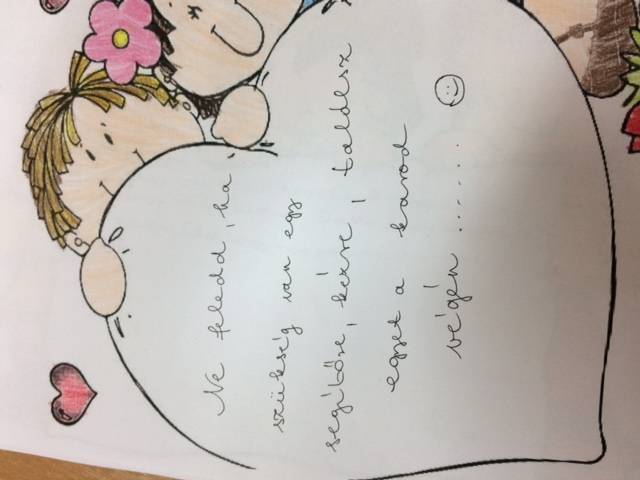 Ne feledd, ha
szükség van egy
segítőre, kézre, találsz
egyet a karod
végén ......